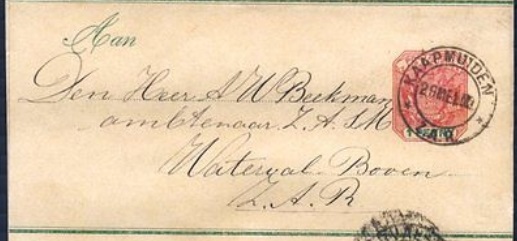 Aan
Den Heer A W Beekman
ambtenaar Z. A. S M
Waterval-Boven
Z. A. R
KAAPMUIDEN
Z.A.R.